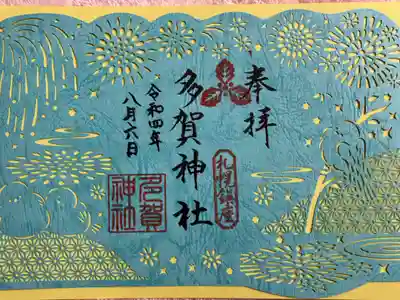 奉拝
多賀神社
札幌鎮座
令和四年
八月六日
多賀
神社